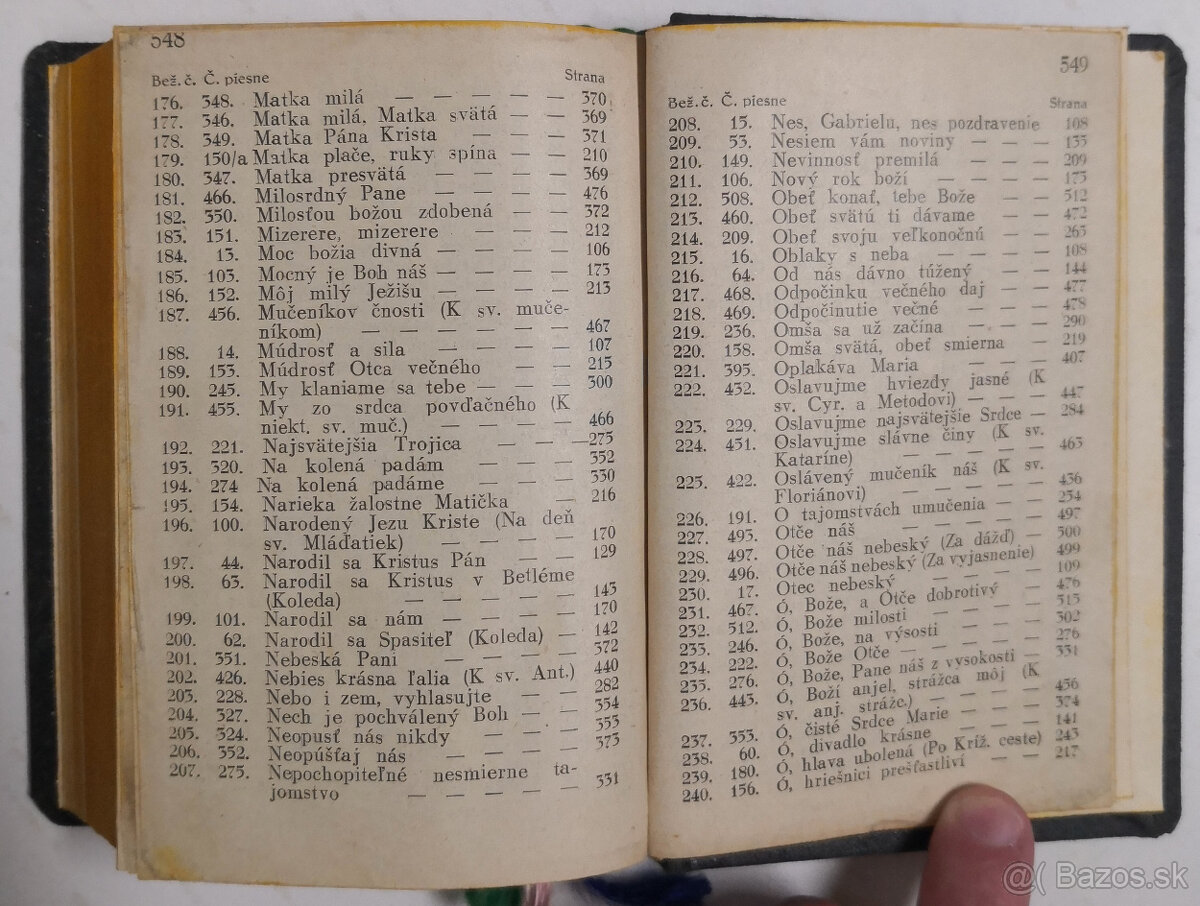 548
Bež. č. Č. piesne Strana
176. 348. Matka milá — — — — — 370
177. 346. Matka milá, Matka svätá — — 369
178. 349. Matka Pána Krista — — — 371
179. 150/a Matka plače, ruky spína — — 210
180. 347. Matka presvätá — — — — 369
181. 466. Milosrdný Pane — — — — 476
182. 350. Milosťou božou zdobená — — 372
183. 151. Mizerere, mizerere — — — 212
184. 13. Moc božia divná — — — — 106
185. 103. Mocný je Boh náš — — — — 173
186. 152. Môj milý Ježišu — — — — 213
187. 456. Mučeníkov čnosti (K sv. muče-
níkom) — — — — — — 467
188. 14. Múdrosť a sila — — — — 107
189. 153. Múdrosť Otca večného — — — 215
190. 245. My klaniame sa tebe — — — 300
191. 455. My zo srdca povďačného (K
niekt. sv. muč.) — — — — 466
192. 221. Najsvätejšia Trojica — — — 275
193. 320. Na kolená padám — — — 352
194. 274 Na kolená padáme — — — — 330
195. 154. Narieka žalostne Matička — 216
196. 100. Narodený Jezu Kriste (Na deň
sv. Mláďatiek) — — — — 170
197. 44. Narodil sa Kristus Pán — — 129
198. 63. Narodil sa Kristus v Betléme
(Koleda) — — — — — 143
199. 101. Narodil sa nám — — — — 170
200. 62. Narodil sa Spasiteľ (Koleda) — 142
201. 351. Nebeská Pani — — — — 372
202. 426. Nebies krásna ľalia (K sv. Ant.) 440
203. 228. Nebo i zem, vyhlasujte — — 282
204. 327. Nech je pochválený Boh — — 354
205. 324. Neopusť nás nikdy — — — 353
206. 352. Neopúšťaj nás — — — — 373
207. 275. Nepochopiteľné nesmierne ta-
jomstvo — — — — — 331
549
Bež. č. Č. piesne Strana
208. 15. Nes, Gabrielu, nes pozdravenie 108
209. 53. Nesiem vám noviny — — — 135
210. 149. Nevinnosť premilá — — — 209
211. 106. Nový rok boží — — — — 175
212. 508. Obeť konať, tebe Bože — — 512
213. 460. Obeť svätú ti dávame — — 472
214. 209. Obeť svoju veľkonočnú — — 263
215. 16. Oblaky s neba — — — — 108
216. 64. Od nás dávno túžený — — 144
217. 468. Odpočinku večného daj — — 477
218. 469. Odpočinutie večné — — — 478
219. 236. Omša sa už začína — — — 290
220. 158. Omša svätá, obeť smierna — 219
221. 395. Oplakáva Maria — — — 407
222. 432. Oslavujme hviezdy jasné (K
sv. Cyr. a Metodovi) — — — 447
223. 229. Oslavujme najsvätejšie Srdce — 284
224. 451. Oslavujme slávne činy (K sv.
Kataríne) — — — — — 463
225. 422. Oslávený mučeník náš (K sv.
Floriánovi) — — — — — 436
226. 191. O tajomstvách umučenia — — 254
227. 493. Otče náš — — — — — 497
228. 497. Otče náš nebeský (Za dážď) — 500
229. 496. Otče náš nebeský (Za vyjasnenie) 499
230. 17. Otec nebeský — — — — 109
231. 467. Ó, Bože, a Otče dobrotivý — 476
232. 512. Ó, Bože milosti — — — — 515
233. 246. Ó, Bože, na výsosti — — — 302
234. 222. Ó, Bože Otče — — — — 276
235. 276. Ó, Bože, Pane náš z vysokosti — 331
236. 443. Ó, Boží anjel, strážca môj (K
sv. anj. stráže.) — — — — 456
237. 353. Ó, čisté Srdce Marie — — — 374
238. 60. Ó, divadlo krásne — — — 141
239. 180. Ó, hlava ubolená (Po Kríž. ceste) 243
240. 156. Ó, hriešnici prešťastliví — — 217
@( Bazos.sk